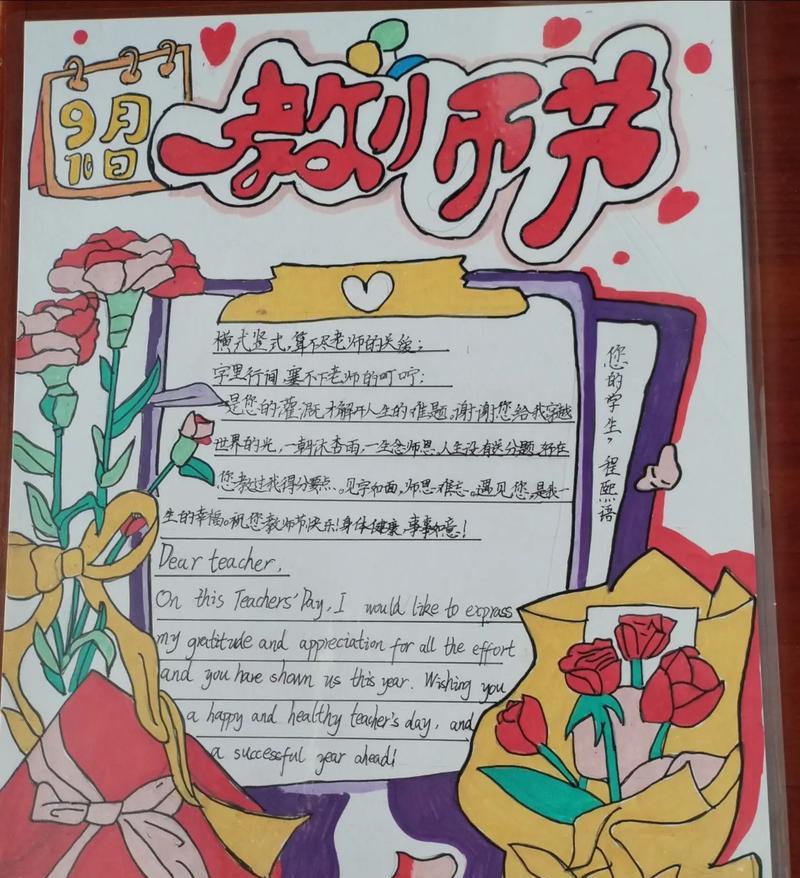 9月
10日
教师节
横式竖式,算不尽老师的关爱;
字里行间,裹不下老师的叮咛;
是您的灌溉,才解开人生的难题。谢谢您给我穿越
世界的光,一朝沐杏雨,一生念师恩,人生没有关分题,存在
您教过我得分要点。见字如面,师恩难忘。遇见您,是我一
生的幸福。祝您教师节快乐!身体健康,事事如意!
Dear teacher,
On this Teachers' Day, I would like to express
my gratitude and appreciation for all the effort
and you have shown us this year. Wishing you
a happy and healthy teacher's day, and
a successful year ahead!
您的学生,程熙语